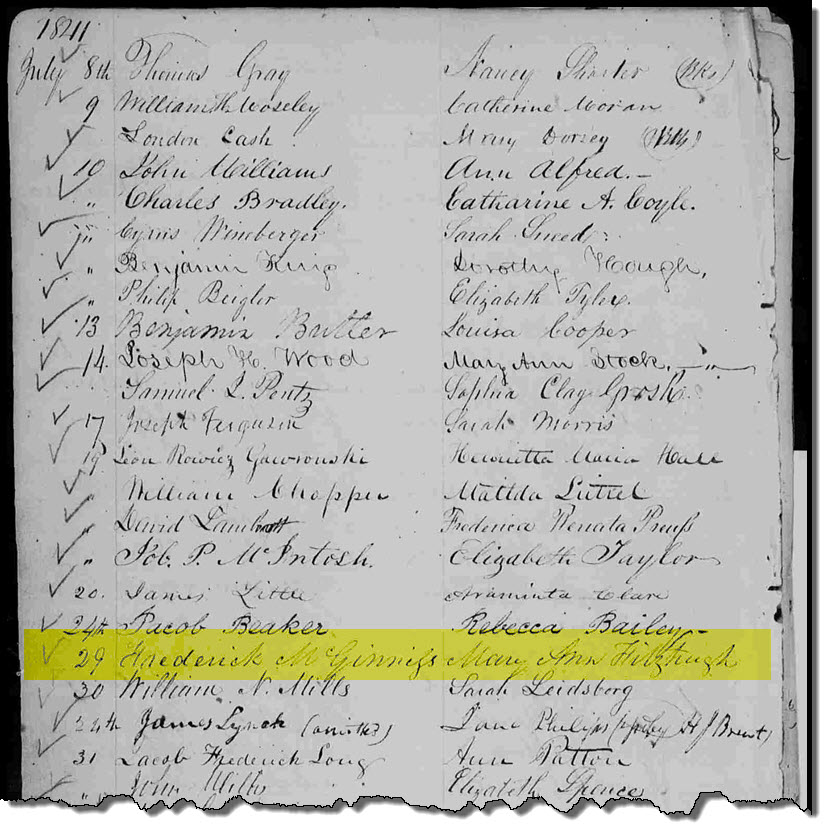 1841
July 8th Thomas Gray Nancy (Blk)
9 William H Moseley Catherine Moran
London Cash Mary Dorsey (Blk)
10 John Williams Ann Alford. –
" Charles Bradley. Catharine A. Coyle.
" Cyrus Wineberger Sarah Sneed
" Benjamin King Dorothy Hough,
" Philip Beigler Elizabeth Tyler.
13 Benjamin Butler Louisa Cooper
14. Joseph H. Wood Mary Ann Stock,
Samuel L. Pentz Sophia Clay Grosh.
17 Joseph Ferguson Sarah Morris
19 Leon Rowicz Gawronski Henrietta Maria Hall
William Choppin Matilda Littel
" David Frederica Renata Preuß
" Job. P. McIntosh. Elizabeth Taylor
20. James Little Araminta Clare
24th Jacob Beaker Rebecca Bailey –
29 Frederick McGinniss Mary Ann Fitzhugh
30 William N. Mills Sarah Leidsborg
24th James Lynch Jane Philips by H J Brent)
31 Jacob Frederick Long Ann Patton
" " John Elizabeth Spence